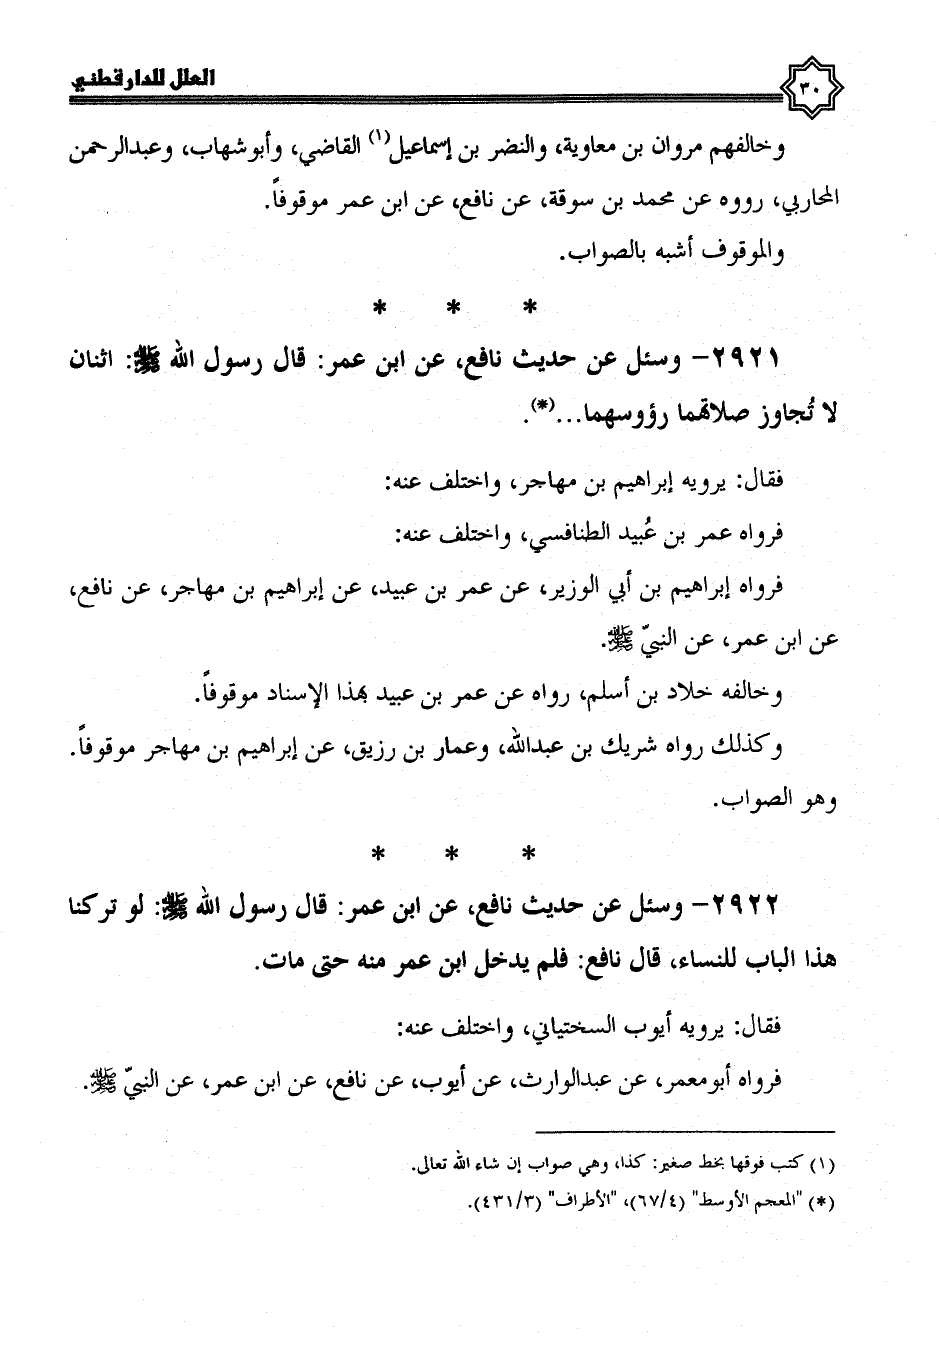 العلل للدارقطني
٣٠
وخالفهم مروان بن معاوية، والنضر بن إسماعيل(١) القاضي، وأبوشهاب، وعبدالرحمن
المحاربي، رووه عن محمد بن سوقة، عن نافع، عن ابن عمر موقوفاً.
والموقوف أشبه بالصواب.
* * *
٢٩٢١- وسئل عن حديث نافع، عن ابن عمر: قال رسول الله ﷺ: اثنان
لا تُجاوز صلاتهما رؤوسهما...(*).
فقال: يرويه إبراهيم بن مهاجر، واختلف عنه:
فرواه عمر بن عُبيد الطنافسي، واختلف عنه:
فرواه إبراهيم بن أبي الوزير، عن عمر بن عبيد، عن إبراهيم بن مهاجر، عن نافع،
عن ابن عمر، عن النبيّ ﷺ.
وخالفه خلاد بن أسلم، رواه عن عمر بن عبيد بهذا الإسناد موقوفاً.
وكذلك رواه شريك بن عبدالله، وعمار بن رزيق، عن إبراهيم بن مهاجر موقوفاً.
وهو الصواب.
* * *
٢٩٢٢- وسئل عن حديث نافع، عن ابن عمر: قال رسول الله ﷺ: لو تركنا
هذا الباب للنساء، قال نافع: فلم يدخل ابن عمر منه حتى مات.
فقال: يرويه أيوب السختياني، واختلف عنه:
فرواه أبومعمر، عن عبدالوارث، عن أيوب، عن نافع، عن ابن عمر، عن النبيّ ﷺ.
(١) كتب فوقها بخط صغير: كذا، وهي صواب إن شاء الله تعالى.
(*) "المعجم الأوسط" (٦٧/٤)، "الأطراف" (٤٣١/٣).